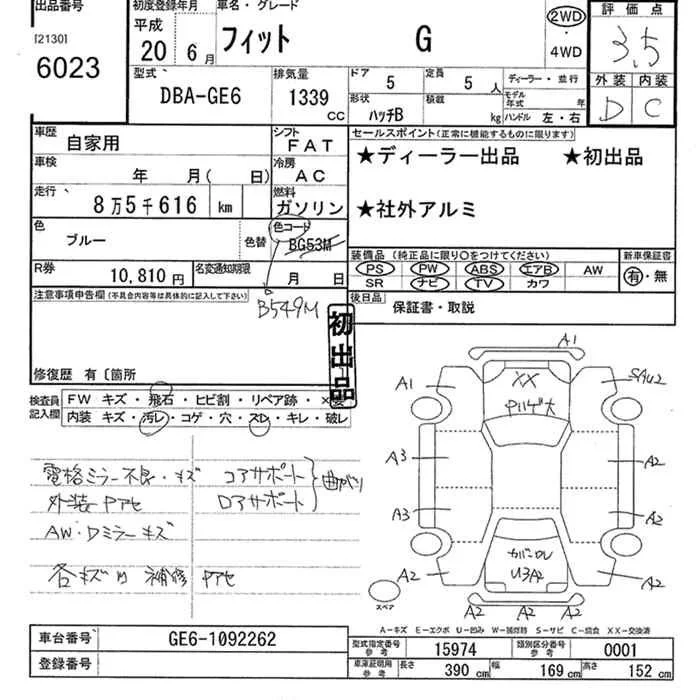 出品番号
[2130]
6023
初度登録年月
平成
20 6月
車名・グレード
フィット G
2WD
・
4WD
評価点
3.5
外装 内装
D C
型式
DBA-GE6
排気量
1339 CC
ドア 5
定員 5 人
ディーラー・並行
形状 ハッチB
積載 kg
モデル年式 年
ハンドル 左・右
車歴
自家用
シフト
FAT
車検
年 月( 日)
冷房
AC
走行
8万5千616 km
燃料
ガソリン
色
ブルー
色替
色コード
BG53M
B549M
R券
10,810円
名変通知期限
月 日
セールスポイント(正常に機能するものに限ります)
★ディーラー出品 ★初出品
★社外アルミ
装備品 (純正品に限り○をつけてください)
PS PW ABS エアB AW
SR ナビ TV カワ
新車保証書
有・無
後日品
保証書・取説
注意事項申告欄(不具合内容等は具体的に記入して下さい)
初出品
修復歴 有〔箇所
検査員記入欄
FW キズ・飛石・ヒビ割・リペア跡・×要
内装 キズ・汚レ・コゲ・穴・スレ・キレ・破レ
電格ミラー不良・キズ
コアサポート
ロアサポート
曲がり
外装Pアセ
AW・Dミラーキズ
各キズ凹 補修Pアセ
A1
A1
XX
A3
A2
A3
A2
カバーワレ
U3A2
A2
A2
A2 A2 A2
スペア
A-キズ E-エクボ U-凹み W-補修跡 S-サビ C-腐食 XX-交換済
車台番号
GE6-1092262
登録番号
型式指定番号 参考
15974
類別区分番号 参考
0001
車庫証明用 参考
長さ 390 cm
幅 169 cm
高さ 152 cm